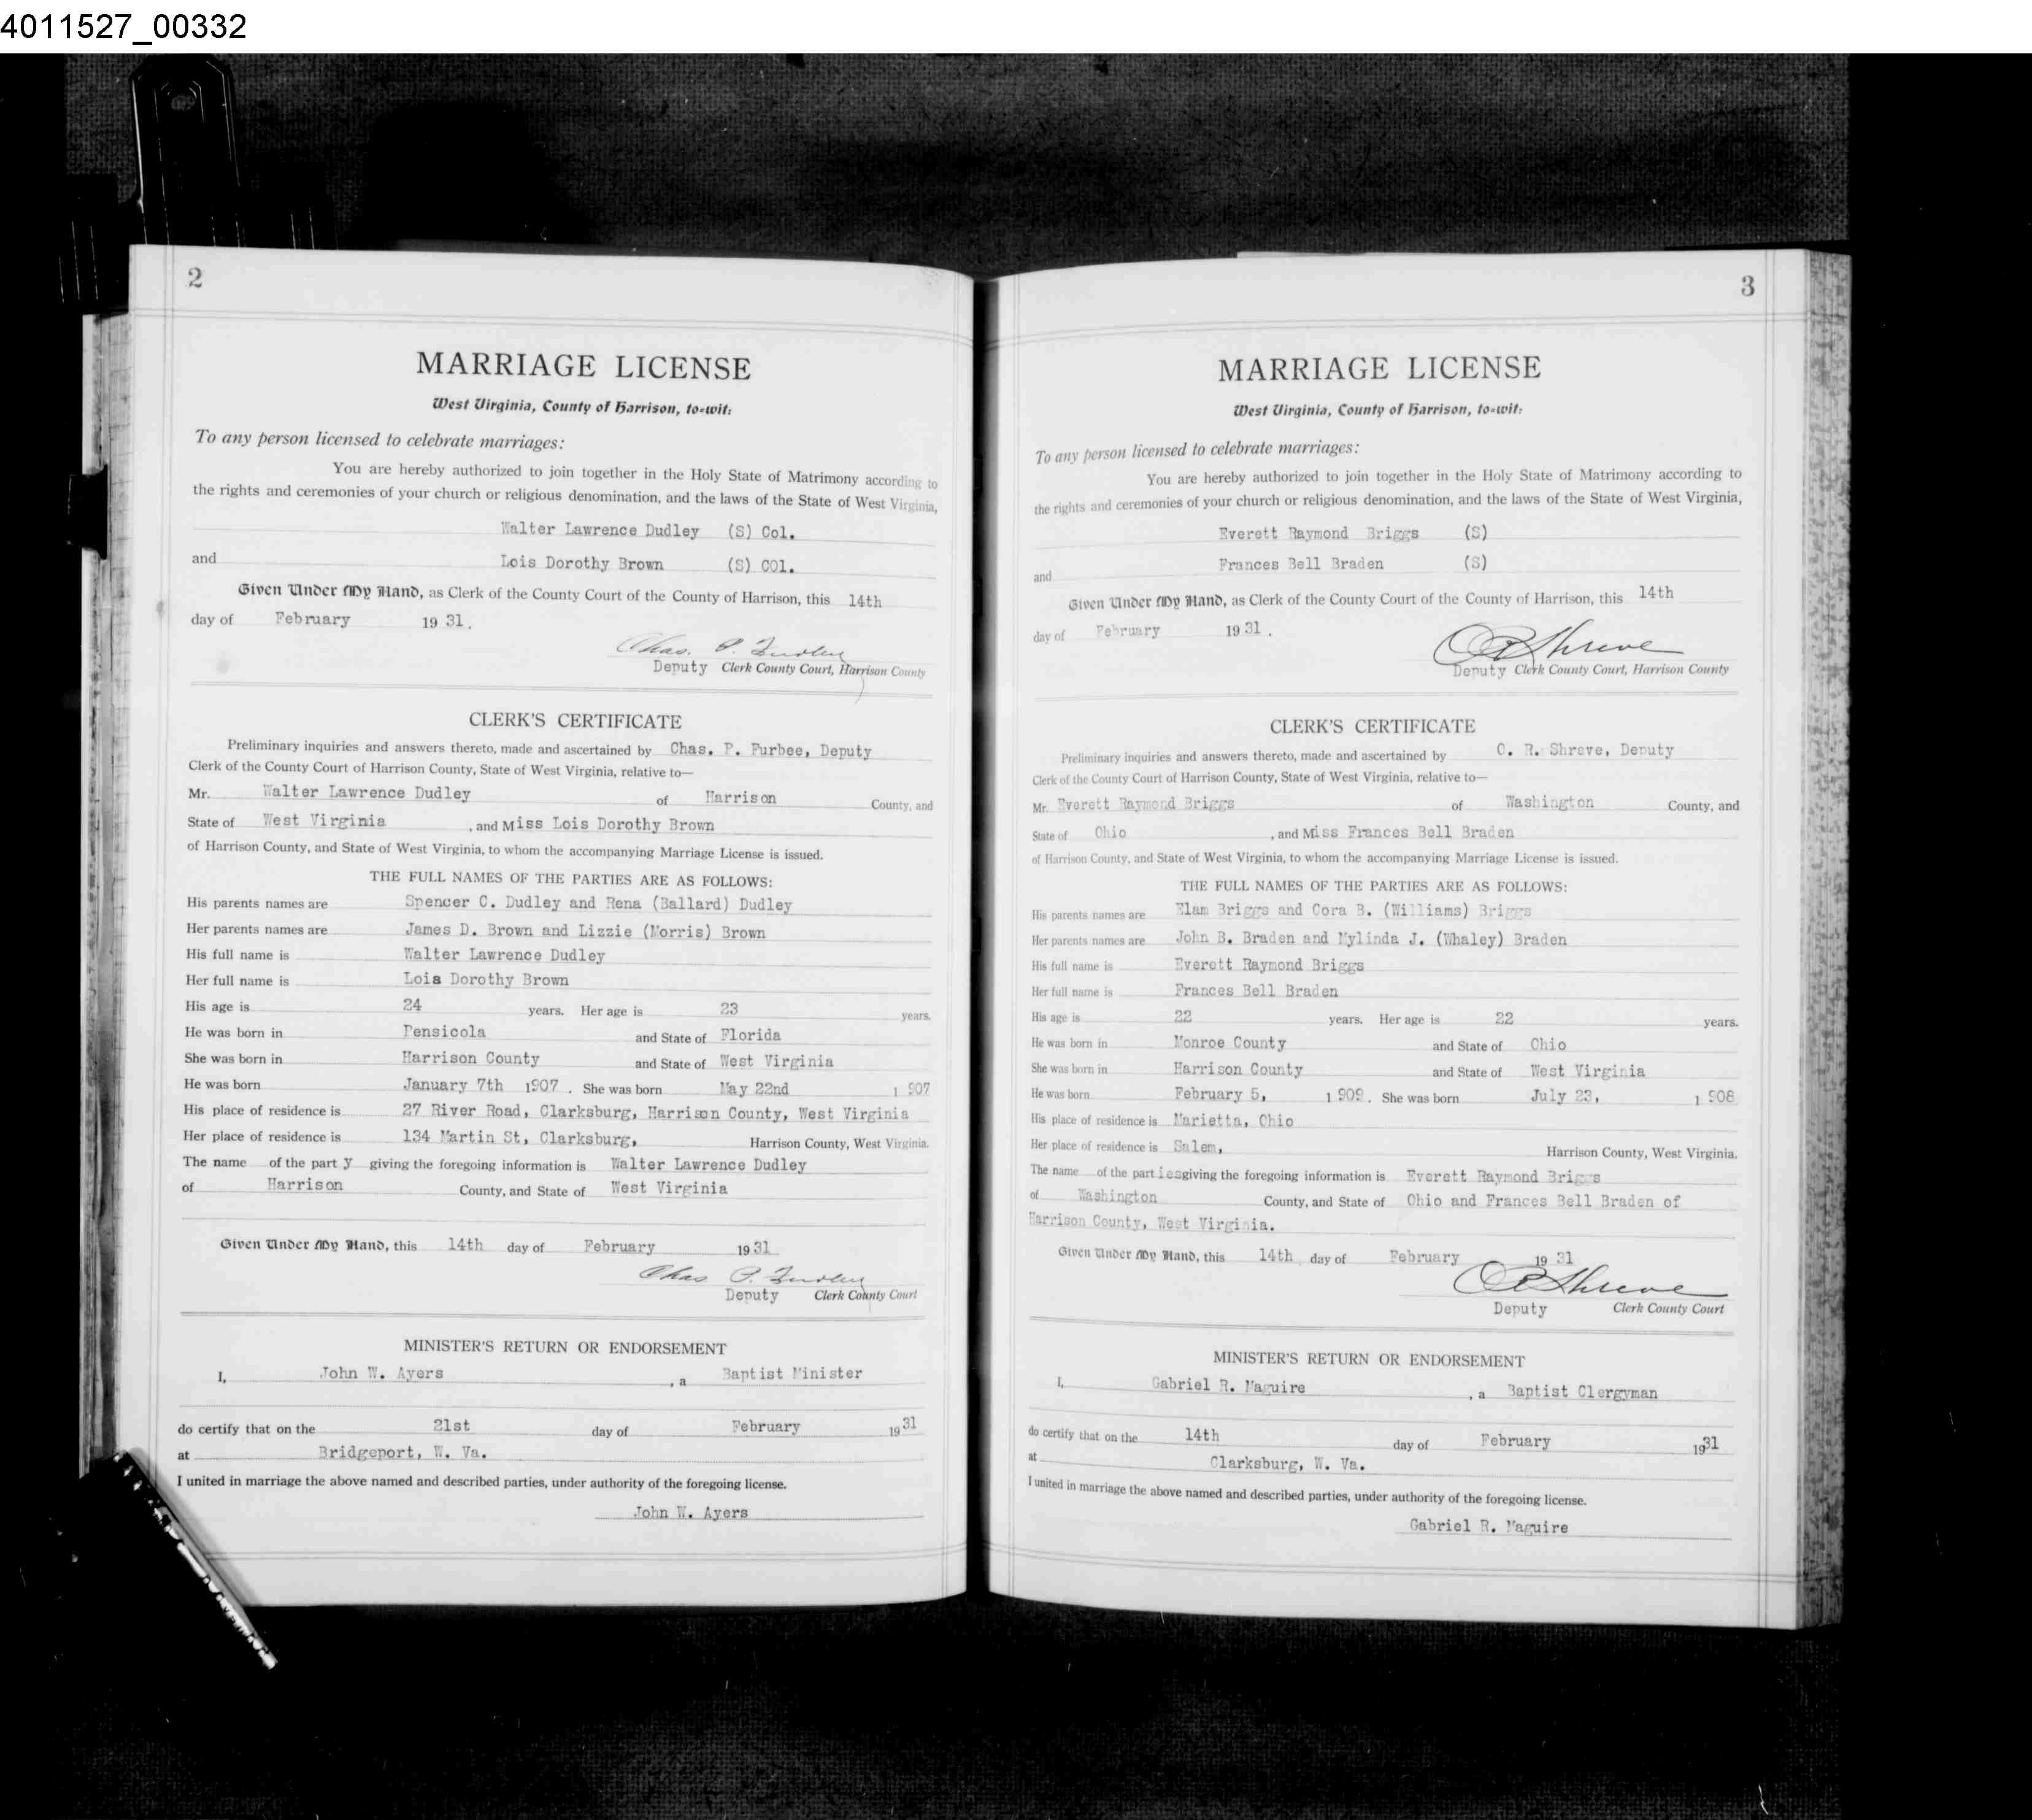 4011527_00332
2
MARRIAGE LICENSE
West Virginia, County of Harrison, to-wit:
To any person licensed to celebrate marriages:
You are hereby authorized to join together in the Holy State of Matrimony according to
the rights and ceremonies of your church or religious denomination, and the laws of the State of West Virginia,
Walter Lawrence Dudley (S) Col.
and Lois Dorothy Brown (S) COl.
Given Under My Hand, as Clerk of the County Court of the County of Harrison, this 14th
day of February 19 31.
Chas. P.
Deputy Clerk County Court, Harrison County
CLERK'S CERTIFICATE
Preliminary inquiries and answers thereto, made and ascertained by Chas. P. Furbee, Deputy
Clerk of the County Court of Harrison County, State of West Virginia, relative to—
Mr. Walter Lawrence Dudley of Harrison County, and
State of West Virginia, and Miss Lois Dorothy Brown
of Harrison County, and State of West Virginia, to whom the accompanying Marriage License is issued.
THE FULL NAMES OF THE PARTIES ARE AS FOLLOWS:
His parents names are Spencer C. Dudley and Rena (Ballard) Dudley
Her parents names are James D. Brown and Lizzie (Morris) Brown
His full name is Walter Lawrence Dudley
Her full name is Lois Dorothy Brown
His age is 24 years. Her age is 23 years.
He was born in Pensicola and State of Florida
She was born in Harrison County and State of West Virginia
He was born January 7th 1907. She was born May 22nd 1907
His place of residence is 27 River Road, Clarksburg, Harrison County, West Virginia
Her place of residence is 134 Martin St, Clarksburg, Harrison County, West Virginia.
The name of the party giving the foregoing information is Walter Lawrence Dudley
of Harrison County, and State of West Virginia
Given Under My Hand, this 14th day of February 1931
Chas P.
Deputy Clerk County Court
MINISTER'S RETURN OR ENDORSEMENT
I, John W. Ayers, a Baptist Minister
do certify that on the 21st day of February 1931
at Bridgeport, W. Va.
I united in marriage the above named and described parties, under authority of the foregoing license.
John W. Ayers
3
MARRIAGE LICENSE
West Virginia, County of Harrison, to-wit:
To any person licensed to celebrate marriages:
You are hereby authorized to join together in the Holy State of Matrimony according to
the rights and ceremonies of your church or religious denomination, and the laws of the State of West Virginia,
Everett Raymond Briggs (S)
and Frances Bell Braden (S)
Given Under My Hand, as Clerk of the County Court of the County of Harrison, this 14th
day of February 1931.
O R Shreve
Deputy Clerk County Court, Harrison County
CLERK'S CERTIFICATE
Preliminary inquiries and answers thereto, made and ascertained by O. R. Shreve, Deputy
Clerk of the County Court of Harrison County, State of West Virginia, relative to—
Mr. Everett Raymond Briggs of Washington County, and
State of Ohio, and Miss Frances Bell Braden
of Harrison County, and State of West Virginia, to whom the accompanying Marriage License is issued.
THE FULL NAMES OF THE PARTIES ARE AS FOLLOWS:
His parents names are Elam Briggs and Cora B. (Williams) Briggs
Her parents names are John B. Braden and Mylinda J. (Whaley) Braden
His full name is Everett Raymond Briggs
Her full name is Frances Bell Braden
His age is 22 years. Her age is 22 years.
He was born in Monroe County and State of Ohio
She was born in Harrison County and State of West Virginia
He was born February 5, 1909. She was born July 23, 1908
His place of residence is Marietta, Ohio
Her place of residence is Salem, Harrison County, West Virginia.
The name of the parties giving the foregoing information is Everett Raymond Briggs
of Washington County, and State of Ohio and Frances Bell Braden of
Harrison County, West Virginia.
Given Under My Hand, this 14th day of February 19 31
O R Shreve
Deputy Clerk County Court
MINISTER'S RETURN OR ENDORSEMENT
I, Gabriel R. Maguire, a Baptist Clergyman
do certify that on the 14th day of February 1931
at Clarksburg, W. Va.
I united in marriage the above named and described parties, under authority of the foregoing license.
Gabriel R. Maguire